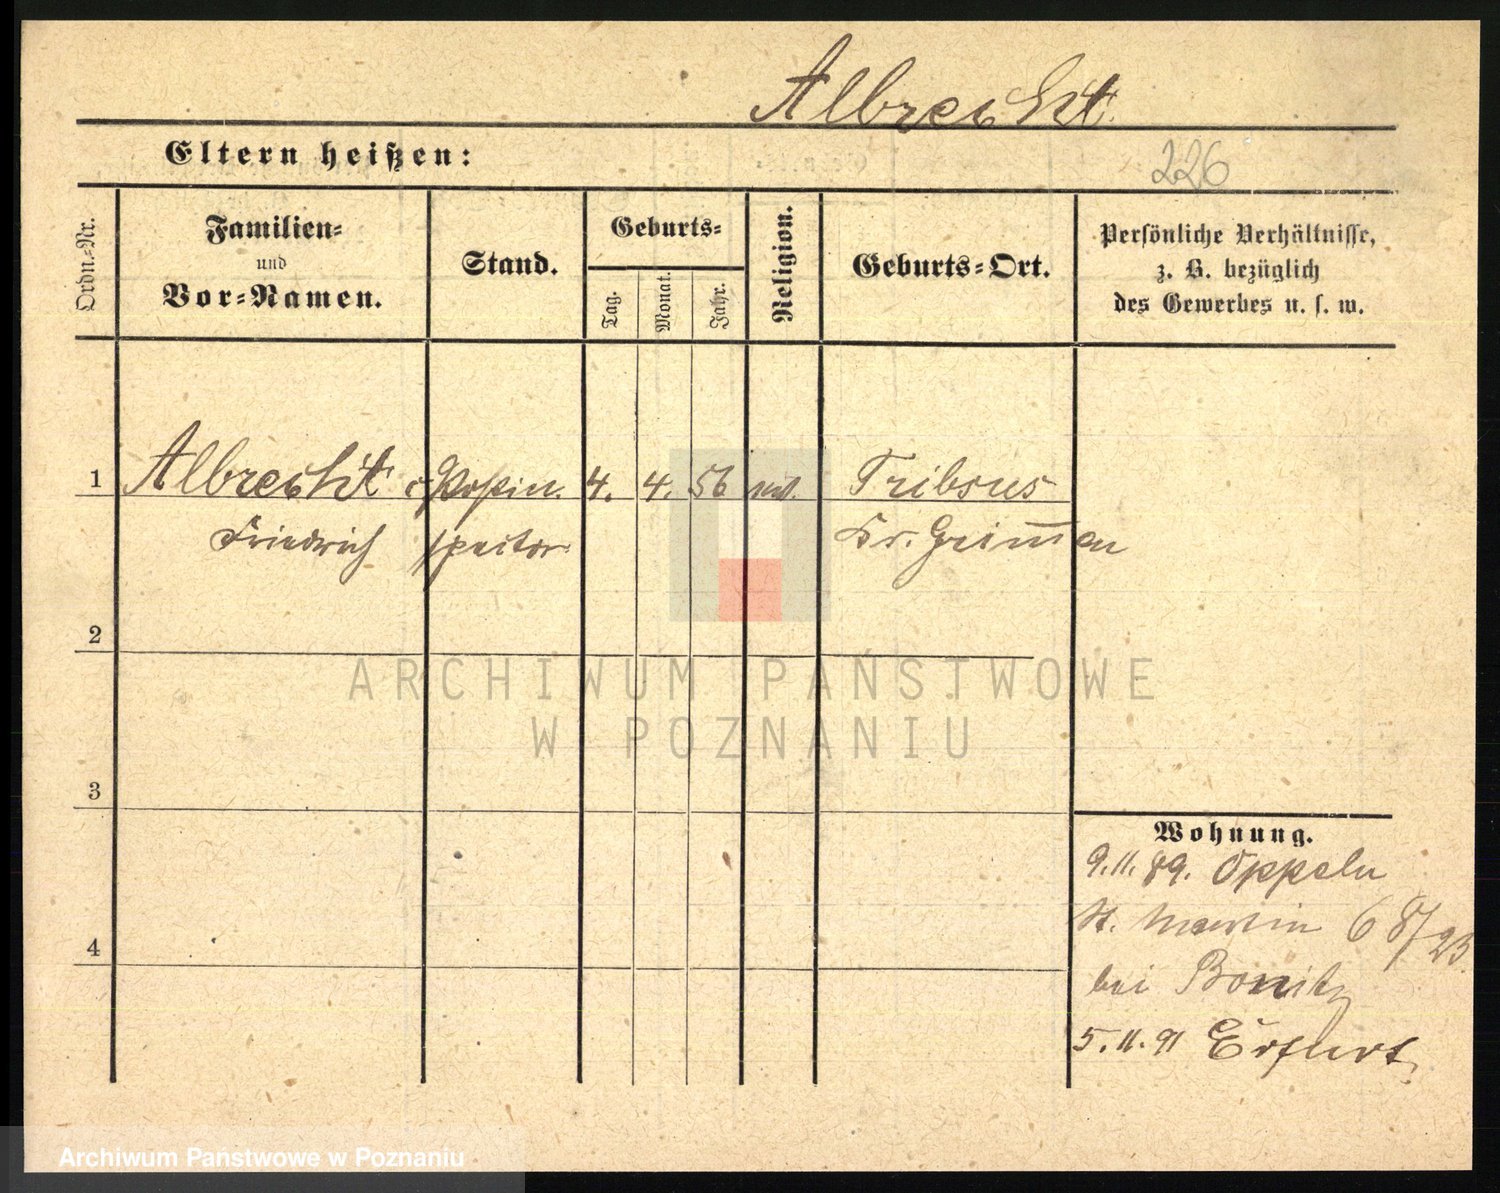 Albrecht
Eltern heißen:
226
Ordn.-Nr.
Familien-
und
Vor-Namen.
Stand.
Geburts-
Tag.
Monat.
Jahr.
Religion.
Geburts-Ort.
Persönliche Verhältnisse,
z. B. bezüglich
des Gewerbes u. s. w.
1 Albrecht 4. 4. 56 Tribsees
Friedrich Kr. Grimmen
2
ARCHIWUM PAŃSTWOWE
W POZNANIU
3
Wohnung.
9.11.89. Oppeln
St. Martin 68/23.
4
bei Bonitz
5.11.91 Erfurt
Archiwum Państwowe w Poznaniu